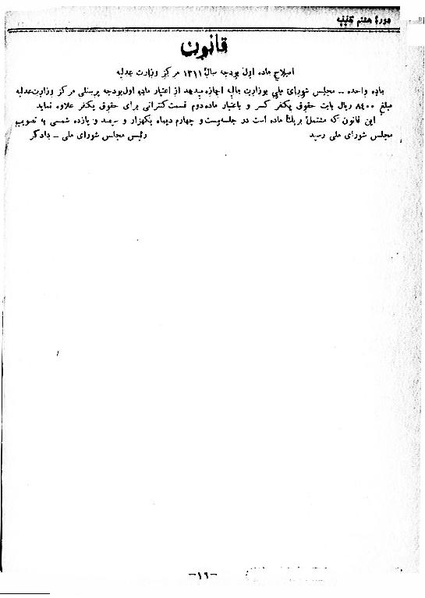 دورهٔ هشتم تقنینیه
قانون
اصلاح ماده اول بودجه سالهٔ ۱۳۱۱ مرکز وزارت عدلیه
ماده واحده - مجلس شورای ملی بوزارت مالیه اجازه میدهد از اعتبار ماده اول بودجه پرسنلی مرکز وزارت عدلیه
مبلغ ۸۴۰۰ ریال بابت حقوق یکنفر کسر و باعتبار ماده دوم قسمت کنتراتی برای حقوق یکنفر علاوه نماید
این قانون که مشتمل بریک ماده است در جلسه بیست و چهارم دیماه یکهزار و سیصد و یازده شمسی به تصویب
مجلس شورای ملی رسید
رئیس مجلس شورای ملی - دادگر
-۱۶-